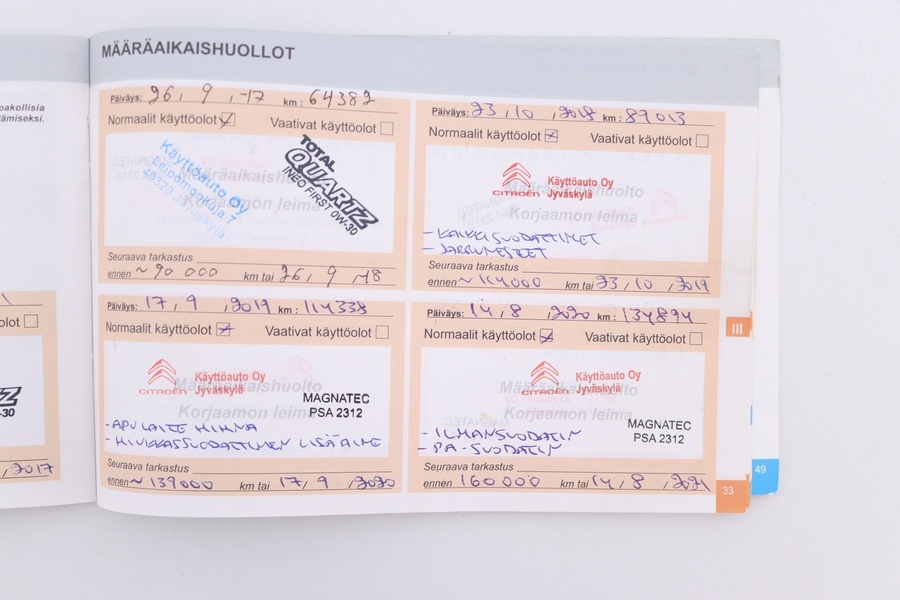 pakollisia
tämiseksi.
MÄÄRÄAIKAISHUOLLOT
Päiväys: 26, 9, -17 km: 64382
Normaalit käyttöolot Vaativat käyttöolot
Käyttöauto Oy
Leipomonkuja 7
40320 Jyväskylä
TOTAL
QUARTZ
INEO FIRST 0W-30
Määräaikaishuolto
Korjaamon leima
Seuraava tarkastus
ennen ~ 90 000 km tai 26, 9, -18
Päiväys: 23, 10, 2018 km: 89013
Normaalit käyttöolot Vaativat käyttöolot
CITROËN
Käyttöauto Oy
Jyväskylä
Määräaikaishuolto
Korjaamon leima
- KAIKKI SUODATTIMET
- JARRUNESTEET
Seuraava tarkastus
ennen ~ 114000 km tai 23, 10, 2019
Päiväys: 17, 9, 2019 km: 114338
Normaalit käyttöolot Vaativat käyttöolot
CITROËN
Käyttöauto Oy
Jyväskylä
Määräaikaishuolto
Korjaamon leima
MAGNATEC
PSA 2312
- APULAITE HIHNA
- HIUKKASSUODATTIMEN LISÄAINE
Seuraava tarkastus
ennen ~ 139000 km tai 17, 9, 2020
Päiväys: 14, 8, 2020 km: 134894
Normaalit käyttöolot Vaativat käyttöolot
CITROËN
Käyttöauto Oy
Jyväskylä
Määräaikaishuolto
Korjaamon leima
MAGNATEC
PSA 2312
- ILMANSUODATIN
- PA-SUODATIN
Seuraava tarkastus
ennen 160000 km tai 14, 8, 2021
olot
Z
-30
, 2017
III
49
33